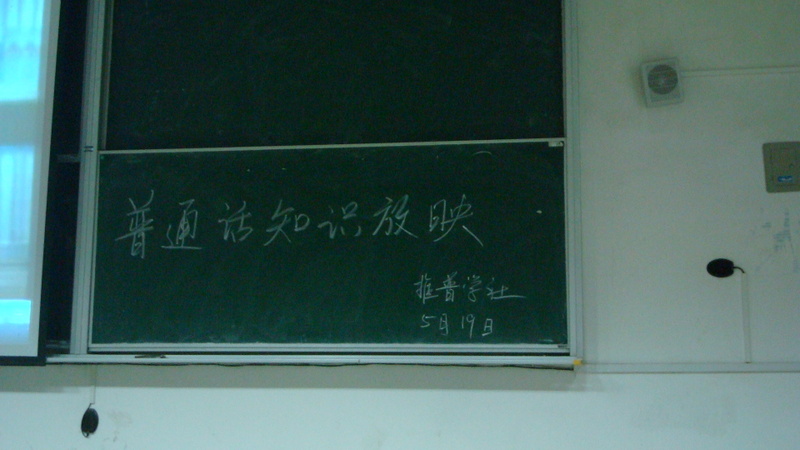 普通话知识放映
推普学社
5月19日